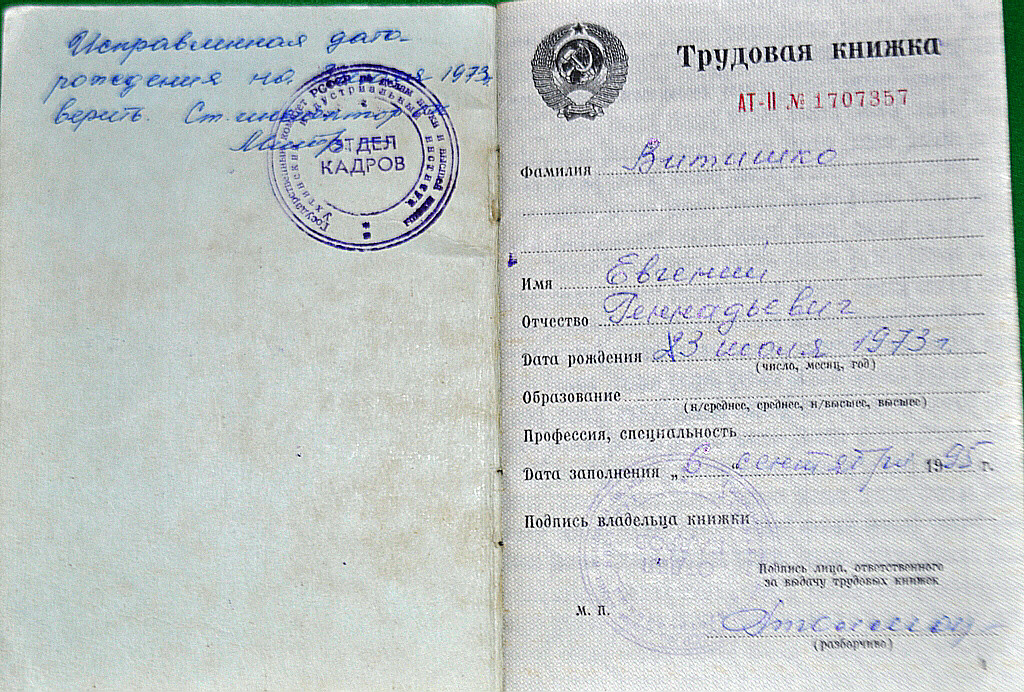 Исправленная дата
рождения на 1973
верить. Ст. инспектор
ОТДЕЛ
КАДРОВ
Трудовая книжка
АТ-II № 1707357
Фамилия Витишко
Имя Евгений
Отчество Геннадьевич
Дата рождения 23 июля 1973 г
(число, месяц, год)
Образование
(н/среднее, среднее, н/высшее, высшее)
Профессия, специальность
Дата заполнения „6" сентября 1995 г.
Подпись владельца книжки
Подпись лица, ответственного
за выдачу трудовых книжек
М. П.
(разборчиво)